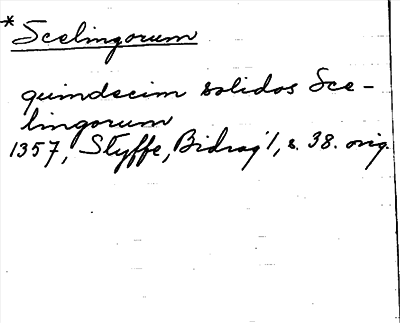 * Scelingorum
quindecim solidos Sce-
lingorum
1357, Styffe, Bidrag 1, s. 38. orig.